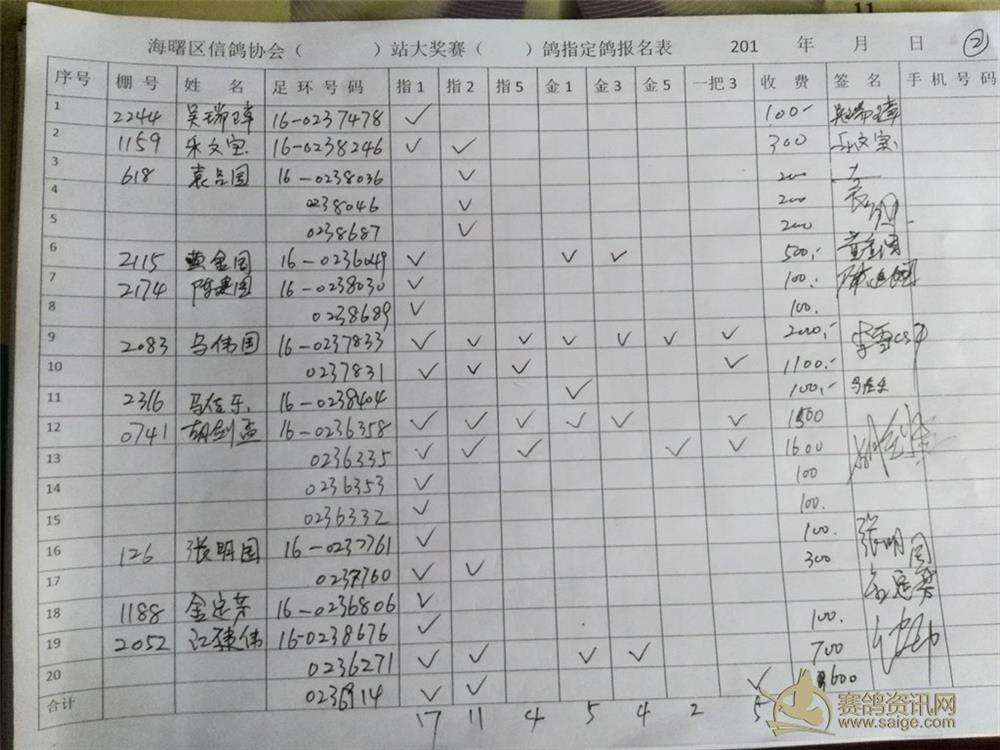 11
海曙区信鸽协会（ ）站大奖赛（ ）鸽指定鸽报名表 201 年 月 日 ②
序号 棚号 姓名 足环号码 指1 指2 指5 金1 金3 金5 一把3 收费 签名 手机号码
1 2244 吴瑞璋 16-0237478 ✓ 100- 吴瑞璋
2 1159 乐文宝 16-0238246 ✓ ✓ 300 乐文宝
3 618 16-0238036 ✓ 200
4 0238046 ✓ 200
5 0238687 ✓ 200
6 2115 黄金国 16-0236049 ✓ ✓ ✓ 500.- 黄金国
7 2174 陈建国 16-0238030 ✓ 100.
8 0238689 ✓ 100.
9 2083 马伟国 16-0237833 ✓ ✓ ✓ ✓ ✓ ✓ ✓ 2000.-
10 0237831 ✓ ✓ ✓ ✓ 1100.-
11 2316 马佳乐 16-0238404 ✓ 100.- 马佳乐
12 0741 16-0236358 ✓ ✓ ✓ ✓ ✓ ✓
13 0236335 ✓ ✓ ✓ ✓ ✓ 1600
14 0236353 ✓ 100
15 0236332 ✓ 100.
16 126 张明国 16-0237761 ✓ 100. 张明国
17 0237760 ✓ ✓ 300
18 1188 金定芳 16-0236806 ✓ 金定芳
19 2052 16-0238676 ✓ 100.
20 0236271 ✓ ✓ ✓ ✓ 700
合计 ✓ ✓ ✓
17 11 4 5 4 2 5
赛鸽资讯网
www.saige.com